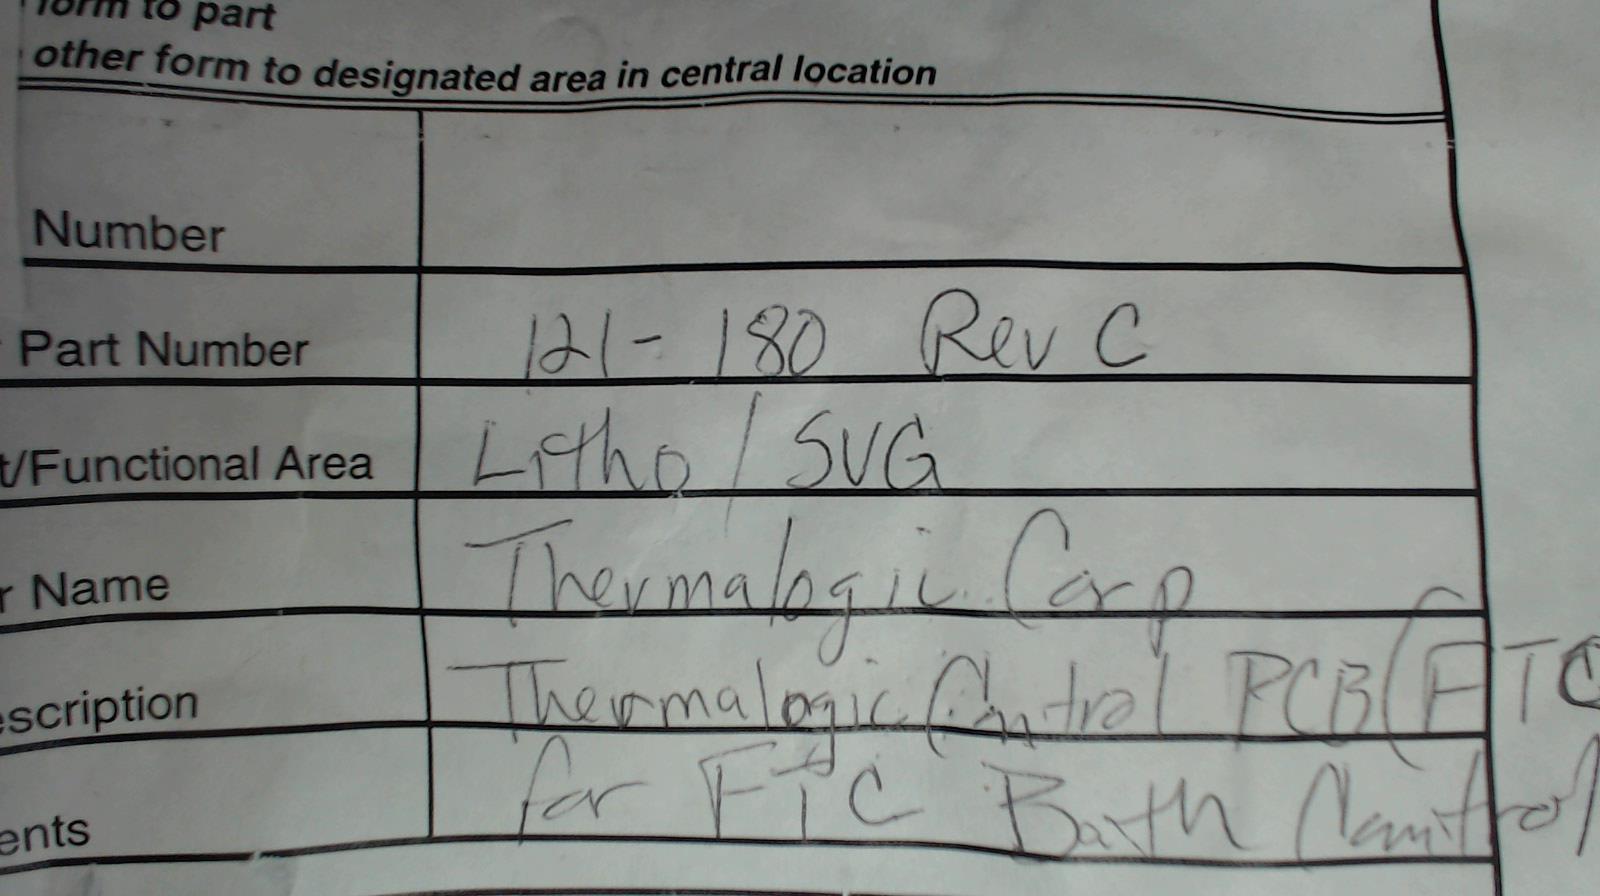 form to part
other form to designated area in central location
Number
Part Number 121-180 Rev C
t/Functional Area Litho / SVG
r Name Thermalogic Corp
escription Thermalogic Control PCB (FTC
ents for FTC Bath Control